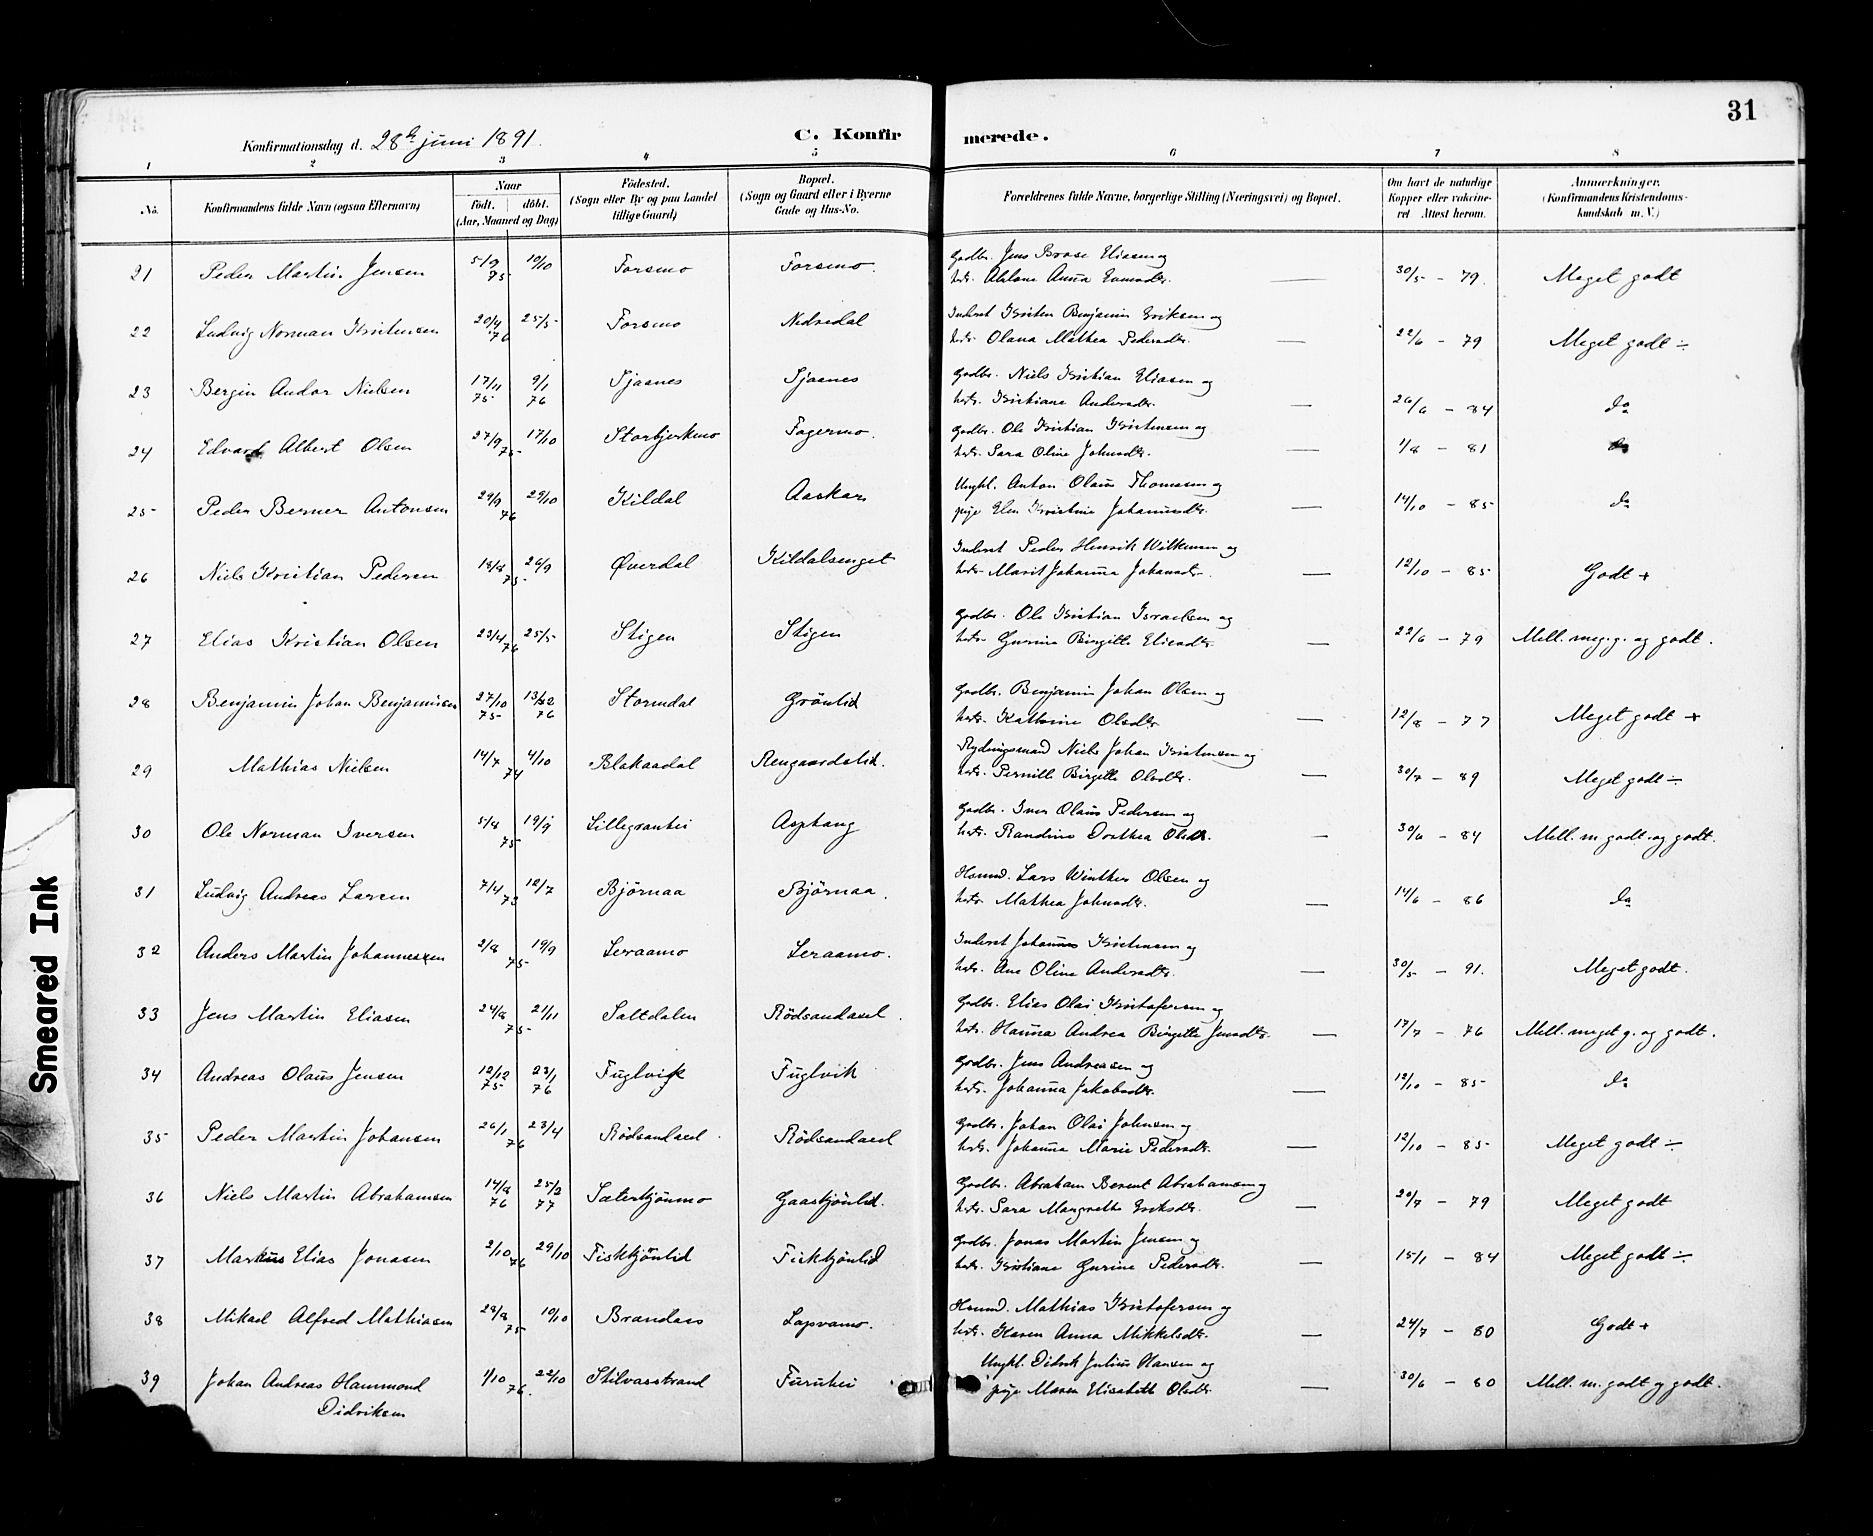 31
Konfirmationsdag d. 28de juni 1891. C. Konfirmerede.
1 2 3 4 5 6 7 8
No. Konfirmandens fulde Navn (ogsaa Efternavn) Naar Födt. döbt. (Aar, Maaned og Dag) Födested. (Sogn eller By og paa Landet tillige Gaard) Bopæl. (Sogn og Gaard eller i Byerne Gade og Hus-No. Forældrenes fulde Navne, borgerlige Stilling (Næringsvei) og Bopæl. Om havt de naturlige Kopper eller vakcineret Attest herom. Anmærkninger. (Konfirmandens Kristendomskundskab m. V.)
21 Peder Martin Jensen 5/9 75 10/10 Forsmo Forsmo. Gadbr. Jens Brose Eliasen og
hstr. Abelone Anna — 30/5 - 79. Meget godt
22 Ludvig Norman Kristensen 20/4 76 25/5 Forsmo Nedredal Inderst Kristen Benjamin Eriksen og
hstr. Olana Mathea Pedersdtr. — 22/6 - 79 Meget godt ÷
23 Bergin Andor Nielsen 17/11 75 9/1 76 Tjaanes Tjaanes Gadbr. Niels Kristian Eliasen og
hstr. Kristiane Andersdtr. — 26/6 - 84 do
24 Edvard Albert Olsen 27/9 75 17/10 Storbjerkmo Fagermo. Gadbr. Ole Kristian Kristensen og
hstr. Sara Oline Johnsdtr. — 1/8 - 81 do
25 Peder Berner Antonsen 29/9 76 29/10 Kildal Aaskar Ungkl. Anton Olaus Thomasen og
pige Elen Kristine Johannesdtr. — 14/10 - 85 do
26 Niels Kristian Pedersen 18/8 75 26/9 Øverdal Kildalsenget Inderst Peder Henrik Wilkensen og
hstr. Marit Johanna Johansdtr. — 12/10 - 85 Godt +
27 Elias Kristian Olsen 23/4 76 25/5 Stigen Stigen Gadbr. Ole Kristian Israelsen og
hstr. Gurine Birgitte Eliasdtr. — 22/6 - 79 Mell. meg. g. og godt.
28 Benjamin Johan Benjaminsen 27/10 75 76 Stormdal Grönlid Gadbr. Benjamin Johan Olsen og
hstr. Kathrine Olsdtr. — 12/8 - 77 Meget godt +
29 Mathias Nielsen 14/7 74 4/10 Blakaadal Rengaardslid. Rydningsmand Niels Johan Kristensen og
hstr. Pernille Birgitte Olsdtr. — 30/7 - 89 Meget godt ÷
30 Ole Norman Iversen 5/8 75 19/9 Lillegranhei Asphaug Gadbr. Iver Olaus Pedersen og
hstr. Randine Dorthea Olsdtr. — 30/6 - 84 Mell. m. godt. og godt.
31 Ludvig Andreas Larsen 7/4 12/7 Björnaa Björnaa. Husmd. Lars Winther Olsen og
hstr. Mathea Johnsdtr. — 14/6 - 86 do
32 Anders Martin Johannessen 2/8 75 19/9 Leraamo Leraamo. Inderst Johannes Kristensen og
hstr. Ane Oline Andersdtr. — 30/5 - 91. Meget godt.
33 Jens Martin Eliasen 24/8 75 21/11 Saltdalen Rödsandaxel. Gadbr. Elias Olai Kristofersen og
hstr. Hanna Andrea Birgitte Jensdtr. — 17/7 - 76 Mell. meget g. og godt.
34 Andreas Olaus Jensen 12/12 75 23/1 76 Fuglvik Fuglvik Gadbr. Jens Andreasen og
hstr. Johanna Jakobsdtr. — 12/10 - 85 do
35 Peder Martin Johansen 26/1 76 23/4 Rödsandaxel. Rödsandaxel Gadbr. Johan Olai Johnsen og
hstr. Johanna Marie Pedersdtr. — 12/10 - 85 Meget godt ÷
36 Niels Martin Abrahamsen 14/8 76 25/2 77 Sæterkjönmo Gaaskjönlid. Gadbr. Abraham Berent Abrahamsen og
hstr. Sara Margrethe Eriksdtr. — 20/7 - 79 Meget godt
37 Markus Elias Jonasen 2/10 76 29/10 Fiskkjönlid Fiskkjönlid Gadbr. Jonas Martin Jensen og
hstr. Kristiane Gurine Pedersdtr. — 15/1 - 84 Meget godt ÷
38 Mikael Alfred Mathiasen 28/8 75 10/10 Brandaas Lapvamo. Husmd. Mathias Kristofersen og
hstr. Karen Anna Mikkelsdtr. — 24/7 - 80 Godt +
39 Johan Andreas Hammond 1/10 76. 22/10 Stilvasstrand Furuhei Ungkl. Didrik Julius Hansen og
Didriksen pige Maren Elisabeth Olsdtr. — 30/6 - 80 Mell. m. godt og godt.
Smeared Ink